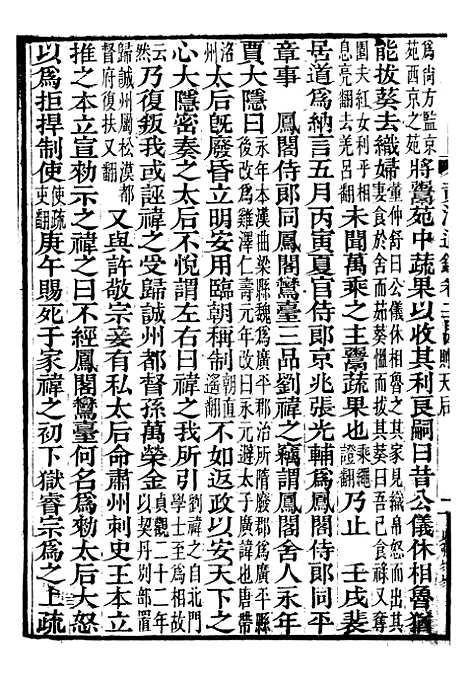 爲尙方監京苑西京之苑將鬻苑中蔬果以收其利良嗣曰昔公儀休相魯猶
能拔葵去織婦董仲舒曰公儀休相魯之其家見織帛怒而出其妻食於舍而茹葵慍而拔其葵曰吾已食祿又奪
園夫紅女利乎相息亮翻去羌呂翻未聞萬乘之主鬻蔬果也乘繩證翻乃止 壬戌裴
居道爲納言五月丙寅夏官侍郎京兆張光輔爲鳳閣侍郎同平
章事 鳳閣侍郎同鳳閣鸞臺三品劉禕之竊謂鳳閣舍人永年
賈大隱曰永年本漢曲梁縣魏爲廣平郡治所隋爲廣平縣後改爲縣仁壽元年改曰永年避太子廣諱也唐帶
洺州太后旣廢昏立明安用臨朝稱制朝直遙翻不如返政以安天下之
心大隱密奏之太后不悅謂左右曰禕之我所引劉禕之自北門學士至爲相故
云然乃復叛我或誣禕之受歸誠州都督孫萬榮金貞觀二十二年以契丹別部置
歸誠州屬松漠都督府復扶又翻又與許敬宗妾有私太后命肅州刺史王本立
推之本立宣勑示之禕之曰不經鳳閣鸞臺何名爲勑太后大怒
以爲拒捍制使使疏吏翻庚午賜死于家禕之初下獄睿宗爲之上疏